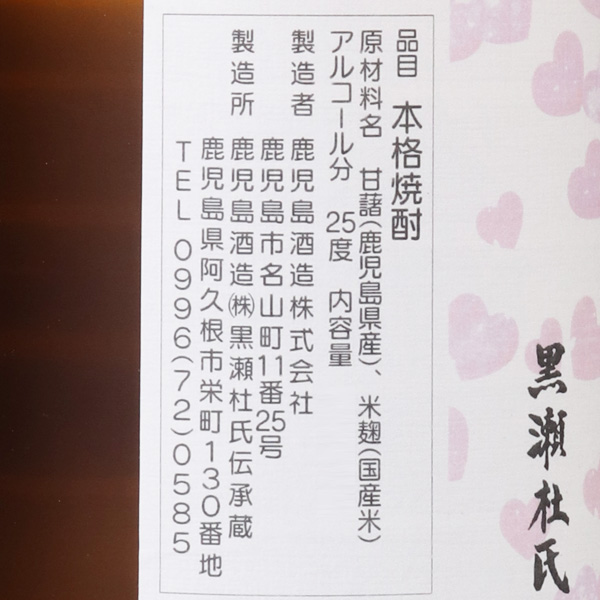 黒瀬杜氏
品目 本格焼酎
原材料名 甘藷(鹿児島県産)、米麹(国産米)
アルコール分 25度 内容量
製造者 鹿児島酒造株式会社
鹿児島市名山町11番25号
製造所 鹿児島酒造㈱黒瀬杜氏伝承蔵
鹿児島県阿久根市栄町130番地
TEL 0996(72)0585